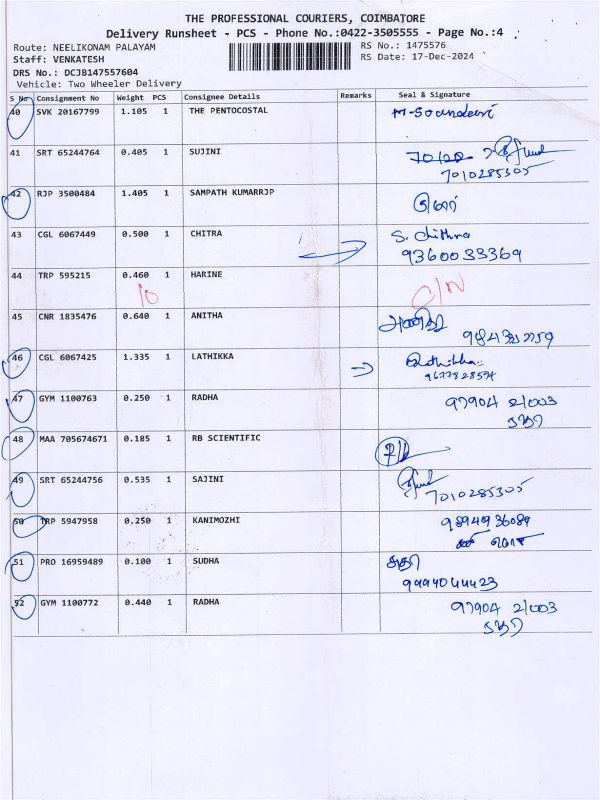 THE PROFESSIONAL COURIERS, COIMBATORE
Delivery Runsheet - PCS - Phone No.:0422-3505555 - Page No.:4
Route: NEELIKONAM PALAYAM RS No.: 1475576
Staff: VENKATESH RS Date: 17-Dec-2024
DRS No.: DCJB147557604
Vehicle: Two Wheeler Delivery
S No Consignment No Weight PCS Consignee Details Remarks Seal & Signature
40 SVK 20167799 1.105 1 THE PENTOCOSTAL M-Soundari
41 SRT 65244764 0.405 1 SUJINI
7010285305
42 RJP 3500484 1.405 1 SAMPATH KUMARRJP
43 CGL 6067449 0.500 1 CHITRA S. Chithra
9360033369
44 TRP 595215 0.460 1 HARINE
10
45 CNR 1835476 0.640 1 ANITHA அனிதா
46 CGL 6067425 1.335 1 LATHIKKA Lathikka
47 GYM 1100763 0.250 1 RADHA 97904 21003
ராதா
48 MAA 705674671 0.185 1 RB SCIENTIFIC
49 SRT 65244756 0.535 1 SAJINI
7010285305
50 TRP 5947958 0.250 1 KANIMOZHI 9894936089
51 PRO 16959489 0.100 1 SUDHA சுதா
9994044423
52 GYM 1100772 0.440 1 RADHA 97904 21003
ராதா